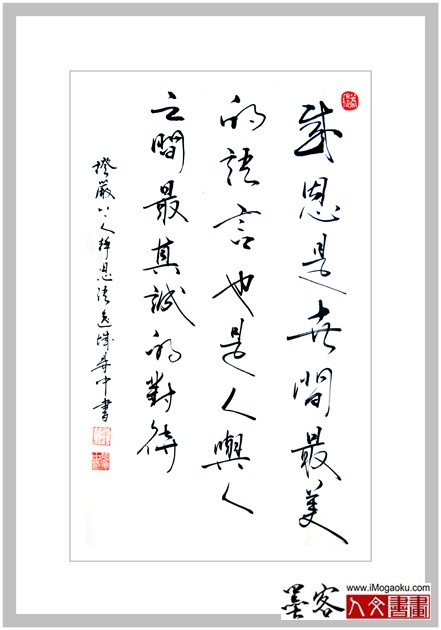 感恩是世間最美
的語言也是人與人
之間最真誠的對待
嚴上人靜思法逸中書
墨客
www.iMogaoku.com
人文書畫